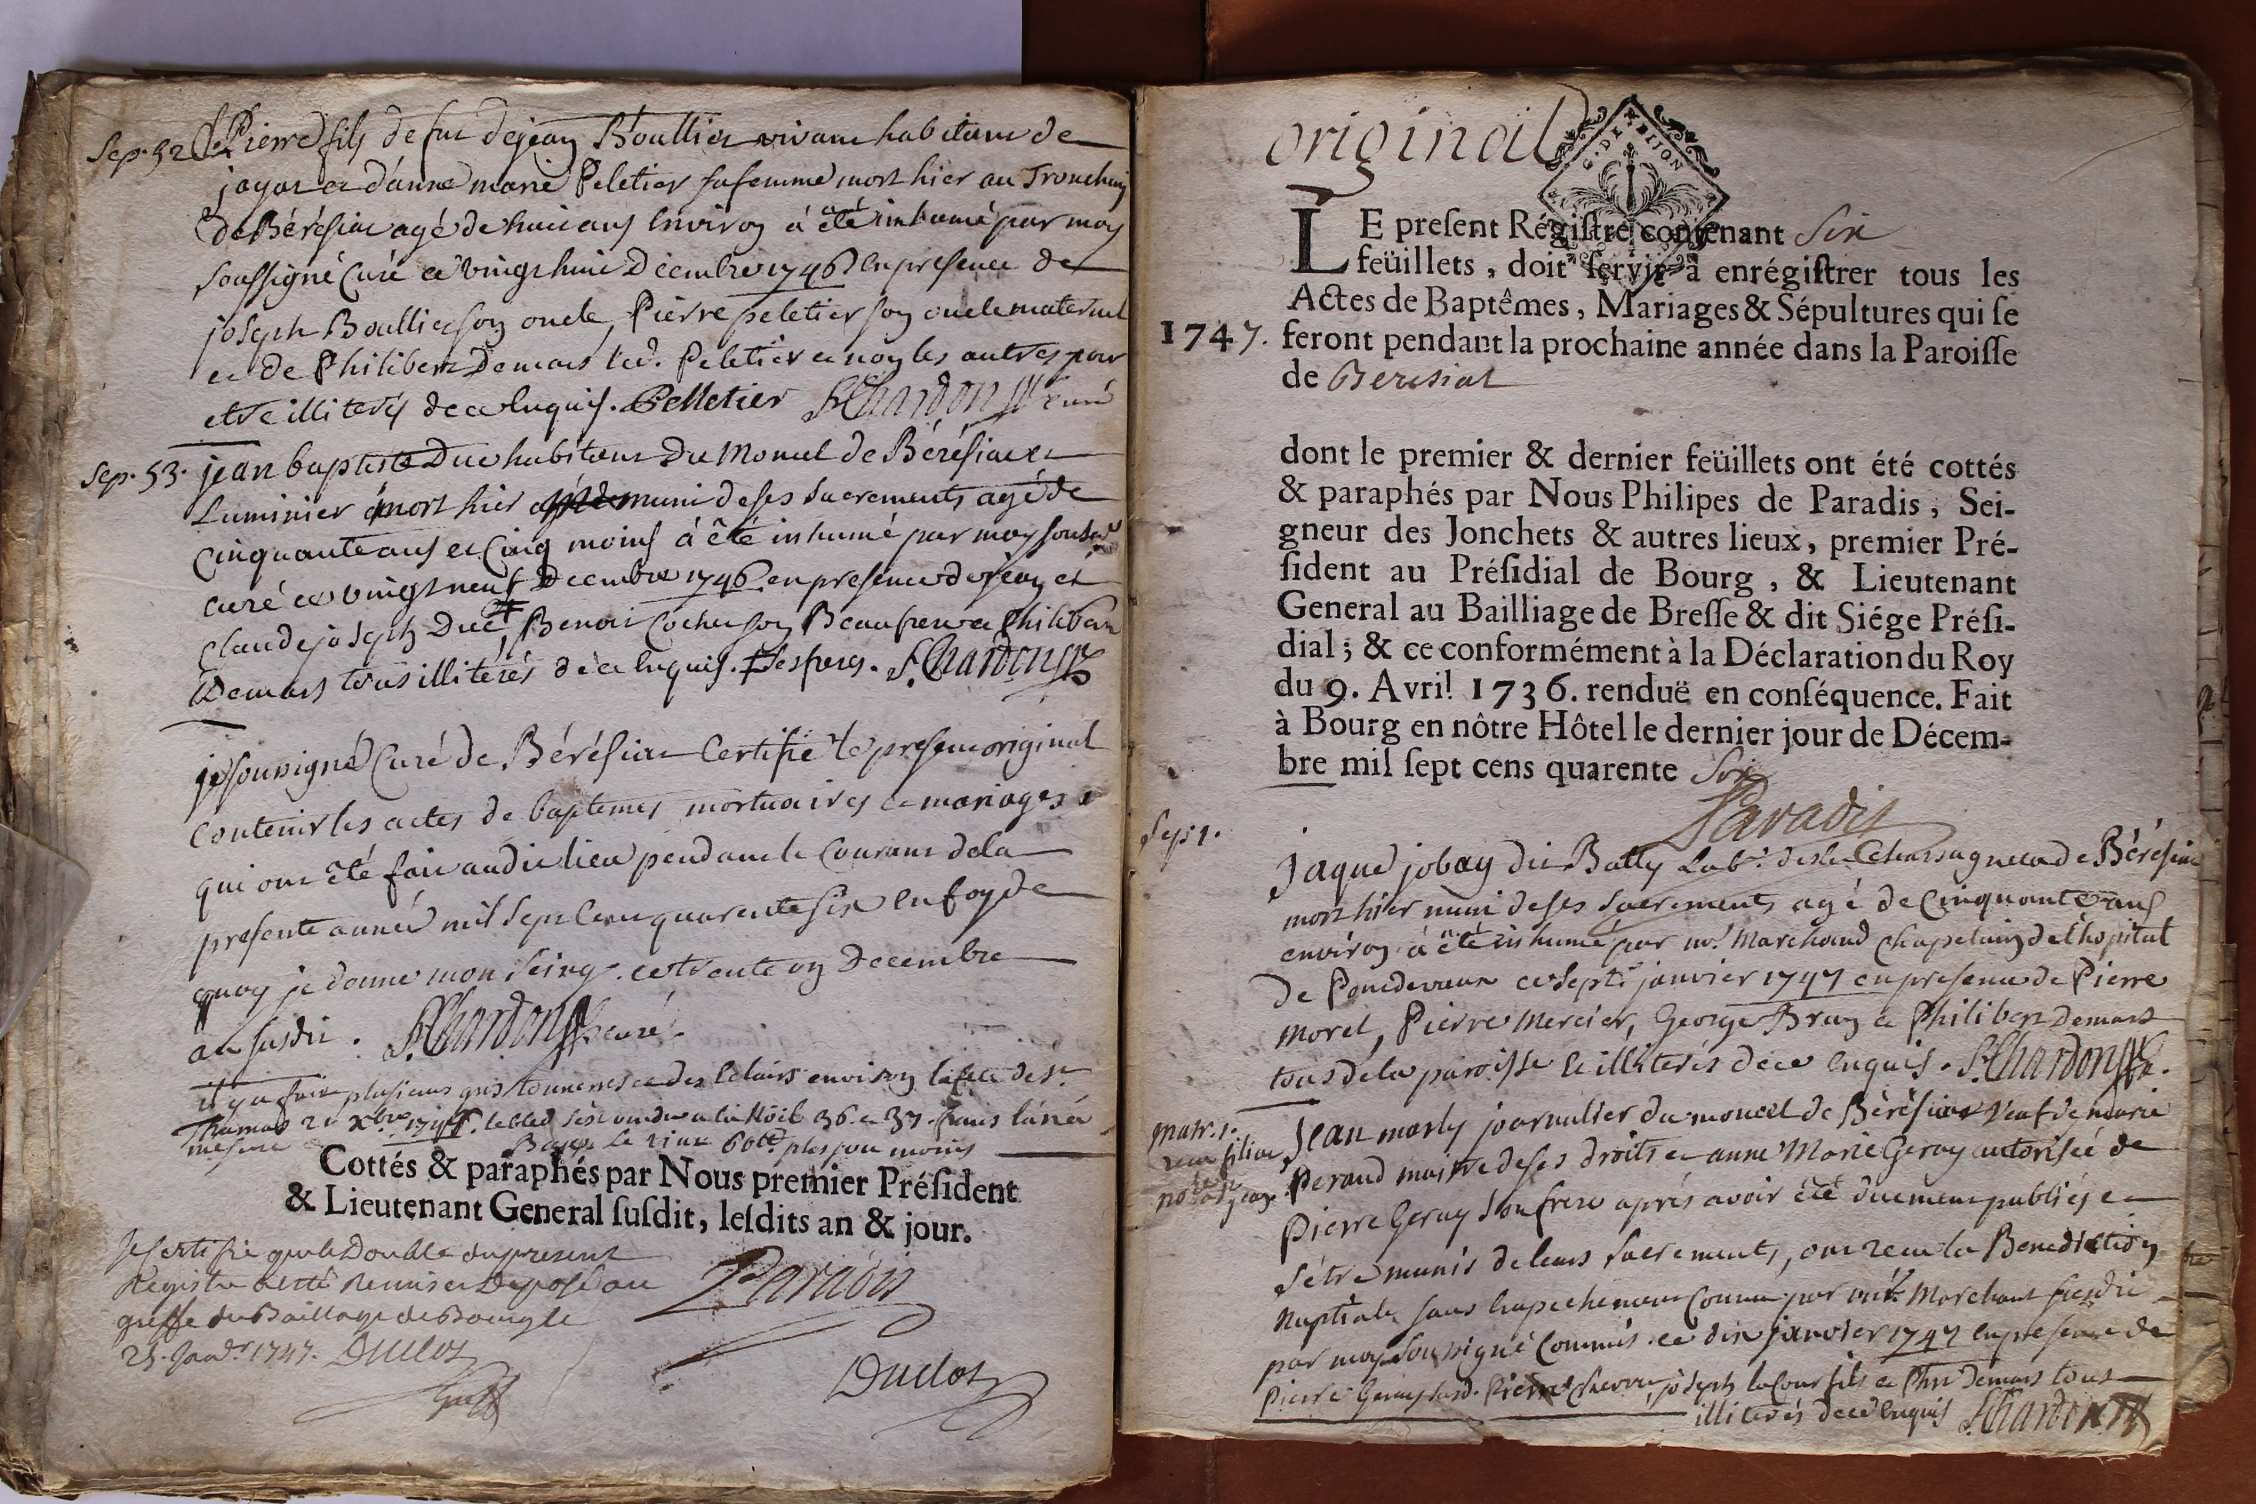 Sep. 52 Pierre fils de feu de jean Boullier vivant habitant de
jayat et d'anne marie Peletier sa femme mort hier au Tronchay
de Bérésiat agé de huit ans environ à été inhumé par moy
soussigné Curé ce vingt huit Décembre 1746 en presence de
joseph Boullier son oncle, Pierre peletier son oncle maternel
et de Philibert Demars led. Peletier et non les autres pour
etre illiterés de ce enquis. Pelletier F. Chardon curé
Sep. 53. jean baptiste Duc habitant Du Moncel de Bérésiat et
Luminier mort hier muni de ses sacrements agé de
Cinquante ans et Cinq moins à été inhumé par moy souss.
curé ce vingt neuf Decembre 1746 en presence de jean et
Claude joseph Duc ‡, Benoit Cochet son Beaufrere et Philibert
Demars tous illiterés de ce enquis. ‡ ses freres. F. Chardon
je souusigné Curé de Bérésiat Certifie le present original
Contenir les actes de baptemes mortuaires et mariages
qui ont été fait audit lieu pendant le Courant de la
presente année mil sept Cent quarente six en foy de
quoy je donne mon seing. ce trente un Decembre
an susdit. F. Chardon curé.
il y a fait plusieurs gros tonnerres et des Eclairs environ la fete de St.
Thomas 21 Xbre 1746. le bled s'est vendu a la 36. et 37. francs l'anée
mesure de Bourg le vin 60tt plus ou moins
Cottés & paraphés par Nous premier Président
& Lieutenant General susdit, lesdits an & jour.
Je Certifie que le Double du present
Registre a esté Remis et Deposé au
greffe du Baillage de Bourg le
23. Janvr 1747. Duclos Paradis
Greff Duclos
original
G. DE DIJON
LE present Régistre contenant Six
feüillets, doit servir à enrégistrer tous les
Actes de Baptêmes, Mariages & Sépultures qui se
1747. feront pendant la prochaine année dans la Paroisse
de Beresiat
dont le premier & dernier feüillets ont été cottés
& paraphés par Nous Philipes de Paradis, Sei-
gneur des Jonchets & autres lieux, premier Pré-
sident au Présidial de Bourg, & Lieutenant
General au Bailliage de Bresse & dit Siége Prési-
dial; & ce conformément à la Déclaration du Roy
du 9. Avril 1736. renduë en conséquence. Fait
à Bourg en nôtre Hôtel le dernier jour de Décem-
bre mil sept cens quarente Six
Paradis
Sep. 1. jaque jobay dit Bally Labr. de Bérésiat
mort hier muni de ses sacrements agé de Cinquante ans
environ à été inhumé par mr. Marchand chapelain de l'hopital
de Pontdevaux ce sept janvier 1747 en presence de Pierre
morel, Pierre Mercier, George Brun et Philibert Demars
tous de la paroisse et illiterés de ce enquis. F. Chardon
Mar. 1. Jean marly journalier du moncel de Bérésiat Veuf de marie
Peraud maitre de ses droits et anne Marie Geray autorisée de
Pierre Geray son frere aprés avoir été duement publiés et
s'étre munis de leurs sacrements, ont receu la Benediction
Nuptiale sans Empechement Connu par mr. Marchant susdit
par moy souusigné Commis ce dix janvier 1747 en presence de
Pierre Geray susd. Pierre joseph la Cour fils et Phrt Demars tous
illiterés de ce enquis F. Chardon